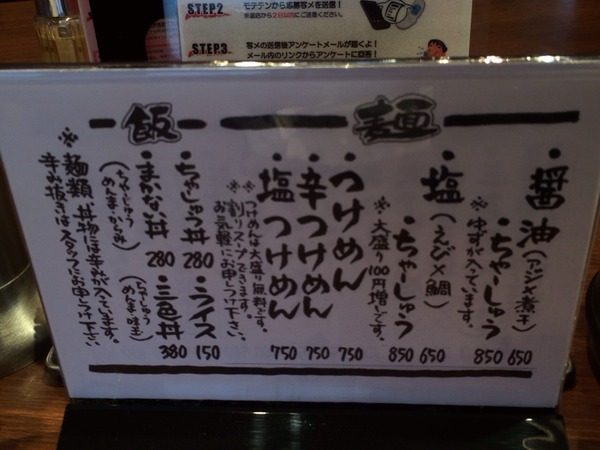 STEP.2
モテデンから応募写メを送信!
来店日から2日以内にご送信ください。
STEP.3
写メの送信後アンケートメールが届くよ!
メール内のリンクからアンケートに回答!
麺
・醤油(アジ×煮干) 650
・ちゃーしゅう 850
※ゆずが入っています。
・塩(えび×鯛) 650
・ちゃーしゅう 850
※大盛り100円増しです。
・つけめん 750
・辛つけめん 750
・塩つけめん 750
※つけめんは大盛り無料です。
※割りスープできます。
お気軽にお申しつけ下さい。
飯
・ちゃしゅう丼 280
・ライス 150
・まかない丼 280
(ちゃーしゅう
めんま・からみ)
・三色丼 380
(ちゃーしゅう
めんま・味玉)
※麺類、丼物には辛みが入っています。
辛み抜きはスタッフにお申しつけ下さい。